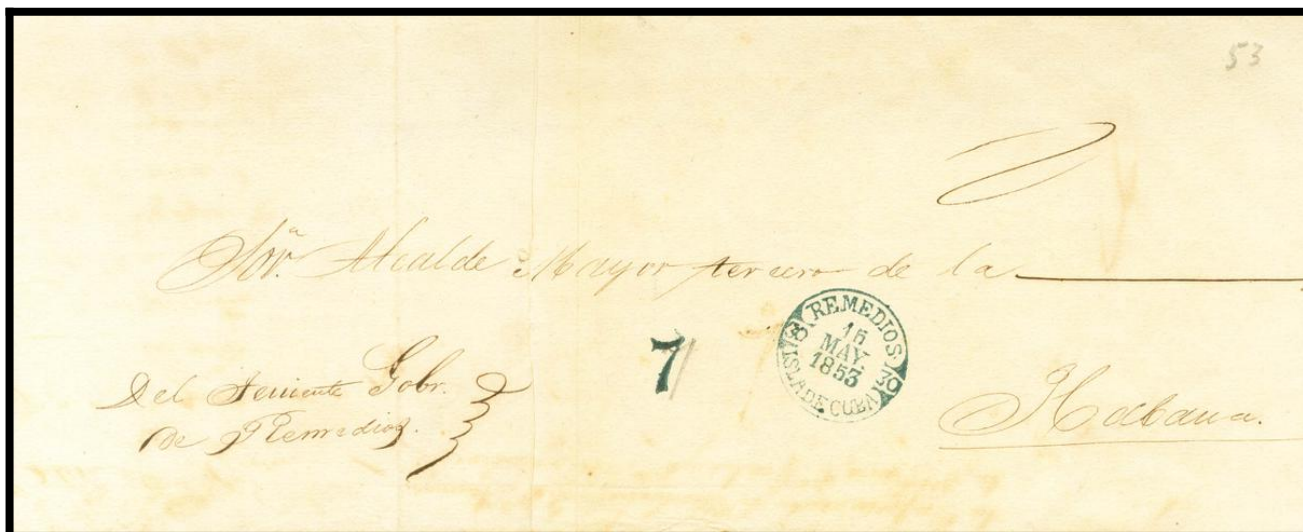 53
Sor.n Alcalde Mayor tercero de la
7
REMEDIOS.
16
MAY.
1853
ISLA DE CUBA
Del Teniente Gobr.
de Remedios.
Habana.